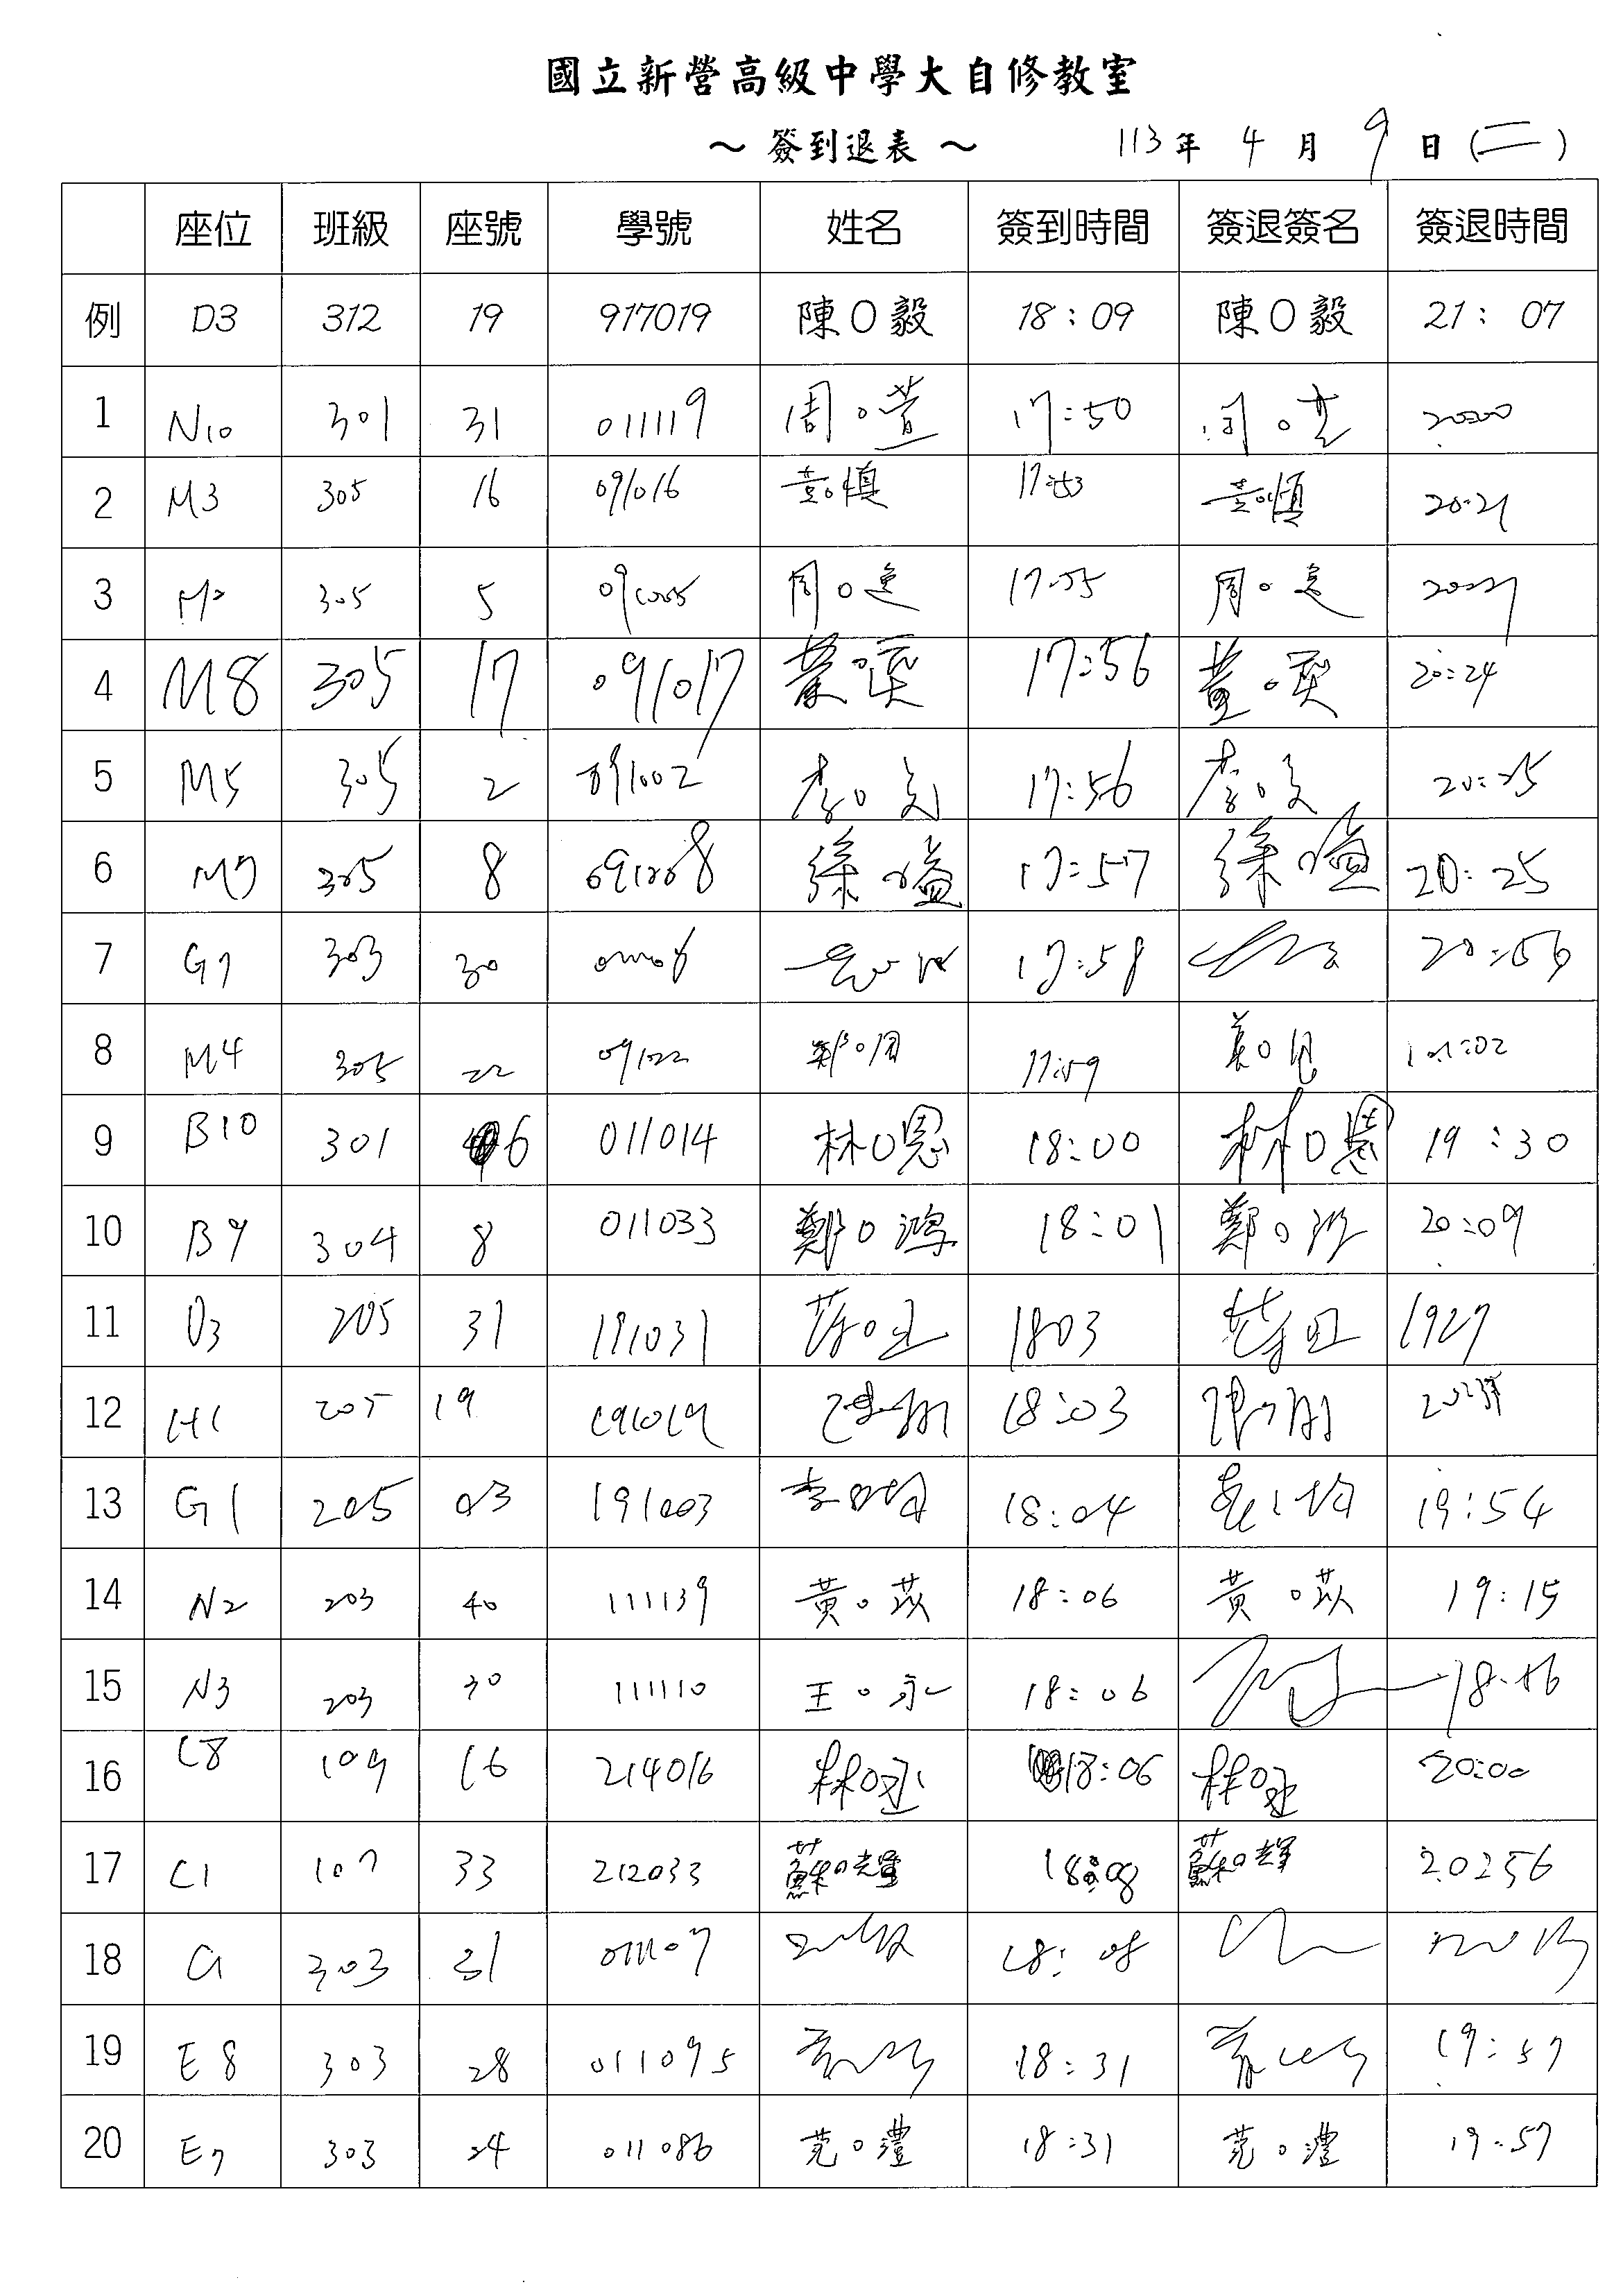 國立新營高級中學大自修教室
～ 簽到退表 ～ 113年 4月 9日(二)
座位 班級 座號 學號 姓名 簽到時間 簽退簽名 簽退時間
例 D3 312 19 917019 陳O毅 18:09 陳O毅 21:07
1 N10 301 31 011119 周O萱 17:50 20:00
2 M3 305 16 091016 17:53 20:21
3 305 5 周O逸 17:55 周O逸
4 M8 305 17 091017 17:56 20:24
5 M5 305 2 091002 李O 17:56 李O 20:25
6 M7 305 8 091008 徐O嗑 17:57 徐O嗑 20:25
7 G7 303 30 17:58 20:56
8 M4 305 22 17:59
9 B10 301 6 011014 林O恩 18:00 林O恩 19:30
10 B9 304 8 011033 鄭O鴻 18:01 鄭O 20:09
11 205 31 191031 1803 1927
12 H1 205 19 191019 18:03
13 G1 205 03 191003 李O昀 18:04 19:54
14 N2 203 40 111139 黃O苡 18:06 黃O苡 19:15
15 N3 203 30 111110 王O永 18:06
16 C8 109 16 214016 林O 18:06 林O 20:00
17 C1 107 33 212033 蘇O輝 18:08 蘇O輝 20:56
18 303 31 18:08
19 E8 303 28 011095 18:31 19:57
20 E7 303 24 011086 范O澧 18:31 范O澧 19:57